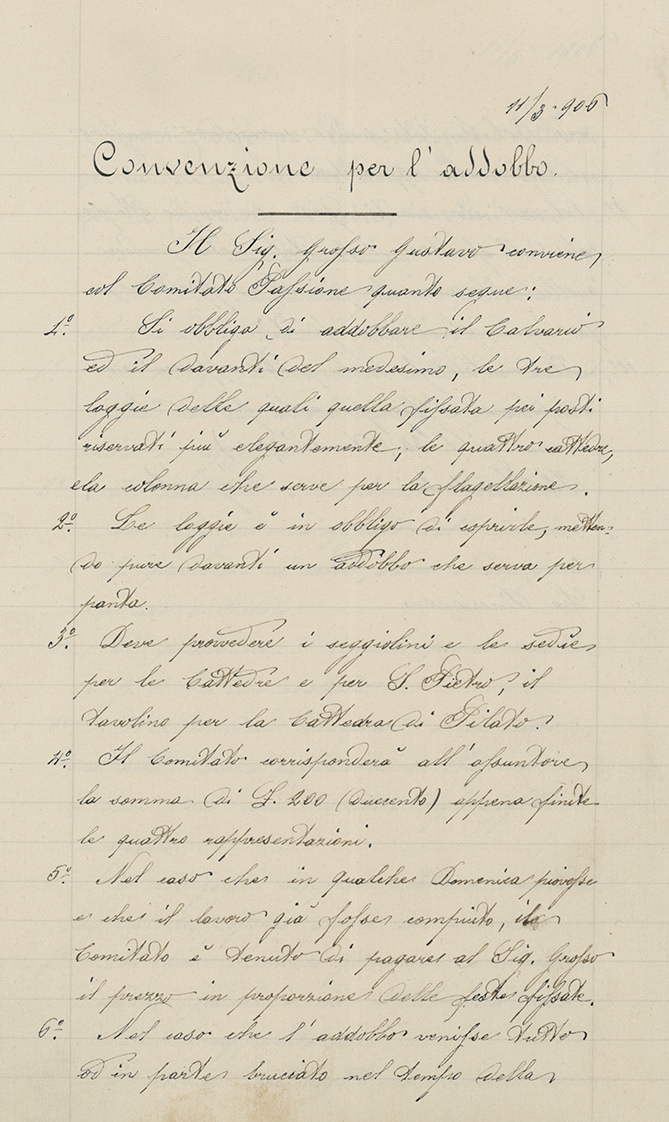 11/3-906
Convenzione per l'addobbo.
Il Sig. Grosso Gustavo conviene
col Comitato Passione quanto segue:
1º. Si obbliga di addobbare il Calvario
ed il davanti del medesimo, le tre
loggie delle quali quella fissata pei posti
riservati più elegantemente; le quattro cattedre,
e la colonna che serve per la flagellazione.
2º. Le loggie è in obbligo di coprirle, metten-
do pure davanti un addobbo che serva per
panta.
3º. Deve provvedere i seggiolini e le sedie
per le Cattedre e per S. Pietro, il
tavolino per la Cattedra di Pilato.
4º. Il Comitato corrisponderà all'assuntore
la somma di L. 200 (duecento) appena finite
le quattro rappresentazioni.
5º. Nel caso che in qualche Domenica piovesse
e che il lavoro già fosse compiuto, il
Comitato è tenuto di pagare al Sig. Grosso
il prezzo in proporzione delle feste fissate.
6º. Nel caso che l'addobbo venisse tutto
od in parte bruciato nel tempo della